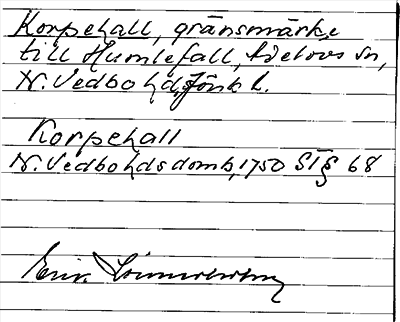 Korpehall, gränsmärke
till Humlefall, Adelövs sn,
N. Vedbo hd, Jönk l.
Korpehall
N. Vedbo hds domb, 1750 ST § 68
Erik